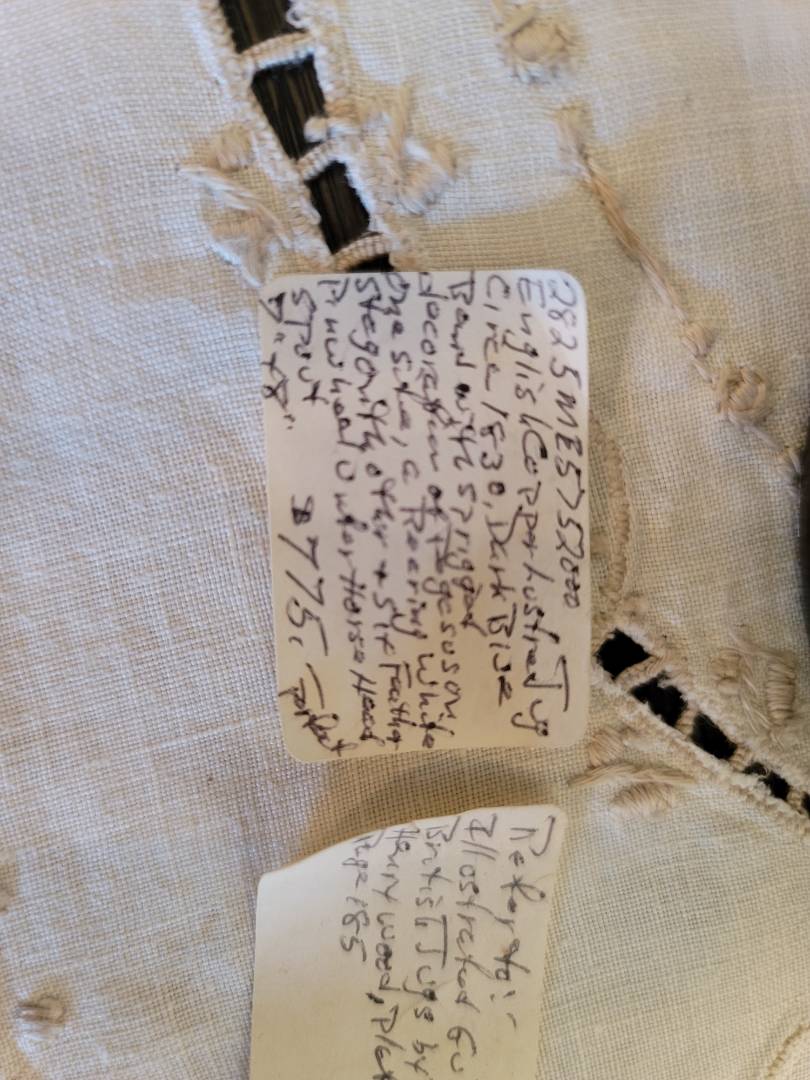 2825 ME5752000
English Copper Lustre Jug
Circa 1830, Dark Blue
Band with Sprigged
decoration of Pegesus on
one side, a Reering White
Steg on the other + Six Feather
Pinwheel Under Horse Head
Spout
7" x 8" $775.- perfect
Refer to:-
Illustrated Gu
British Jugs by
Henry Wood, Plat
Page 185